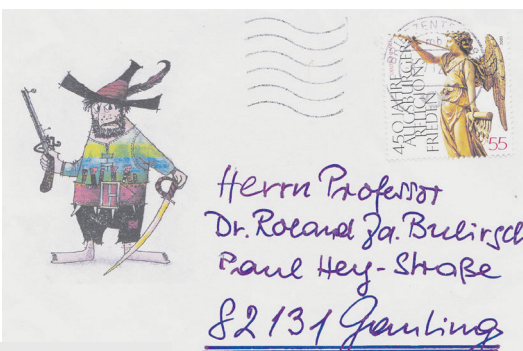 450 JAHRE
AUGSBURGER
RELIGIONS
FRIEDEN
55
Herrn Professor
Dr. Roland Bulirsch
Paul Hey-Straße
82131 Gauting